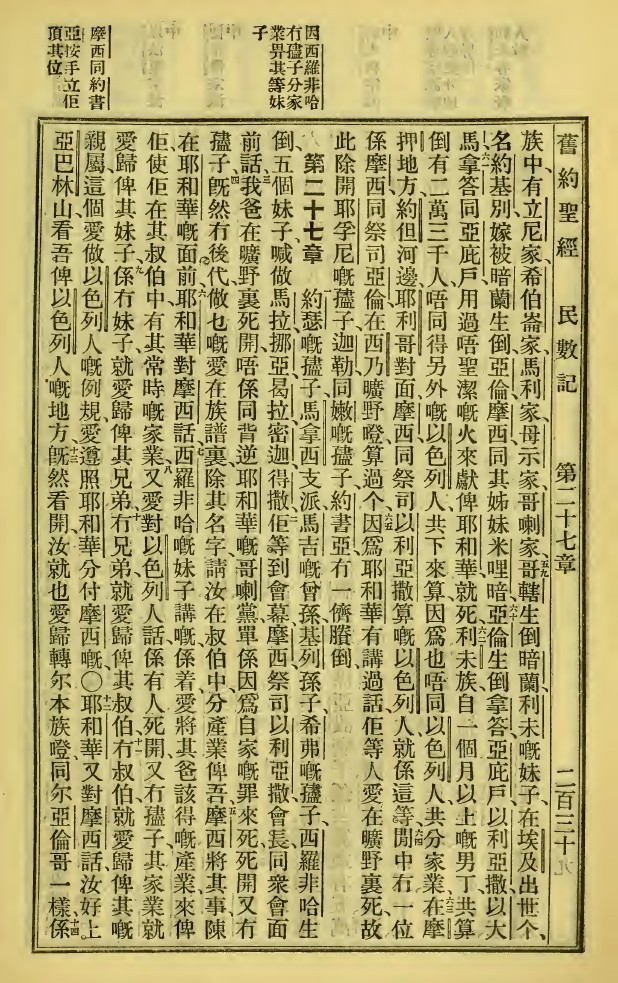 因西羅非哈
冇孻子分家
業畀其等妹
子
摩西同約書
亞按手立佢
頂其位
舊約聖經 民數記 第二十七章 二百三十九
族中、有立尼家、希伯崙家、馬利家、母示家、哥喇家、哥轄生倒暗蘭、利未嘅妹子、在埃及出世个、
名約基別、嫁被暗蘭生倒亞倫摩西、同其姊妹米哩暗、亞倫生倒拿答亞庇戶、以利亞撒、以大
馬、拿答同亞庇戶、用過唔聖潔嘅火來獻俾耶和華、就死、利未族自一個月以上嘅男丁、共算
倒有二萬三千人、唔同得另外嘅以色列人共下來算、因爲也唔同以色列人共分家業、在摩
押地方、約但河邊、耶利哥對面、摩西同祭司以利亞撒算嘅以色列人、就係這等、間中冇一位
係摩西同祭司亞倫、在西乃曠野噔算過个、因爲耶和華有講過話、佢等人愛在曠野裏死、故
此除開耶孚尼嘅孻子迦勒、同嫩嘅孻子約書亞、冇一儕賸倒、
第二十七章 約瑟嘅孻子馬拿西支派、馬吉嘅曾孫、基列孫子、希弗嘅孻子、西羅非哈生
倒五個妹子、喊做馬拉、挪亞、曷拉、密迦、得撒、佢等到會幕、摩西祭司以利亞撒、會長、同衆會面
前話、我爸在曠野裏死開、唔係同背逆耶和華嘅哥喇黨、單係因爲自家嘅罪來死、死開又冇
孻子、旣然冇後代、做乜嘅愛在族譜裏除其名字、請汝在叔伯中、分產業俾吾、摩西將其事陳
在耶和華嘅面前、耶和華對摩西話、西羅非哈嘅妹子講嘅係着、愛將其爸該得嘅產業來俾
佢、使佢在其叔伯中、有其常時嘅家業、又愛對以色列人話、係有人死開、又冇孻子、其家業就
愛歸俾其妹子、係冇妹子、就愛歸俾其兄弟、冇兄弟、就愛歸俾其叔伯、冇叔伯、就愛歸俾其嘅
親屬、這個愛做以色列人嘅例規、愛遵照耶和華分付摩西嘅○耶和華又對摩西話、汝好上
亞巴林山、看吾俾以色列人嘅地方、旣然看開、汝就也愛歸轉尔本族噔、同尔亞倫哥一樣、係